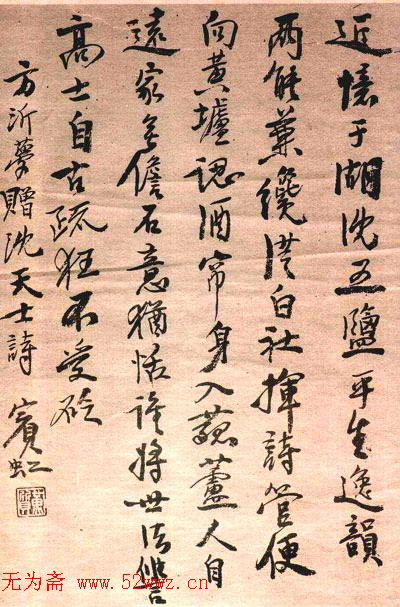 近憶于湖沈五鹽平生逸韻
兩能兼纔從白社揮詩管便
向黃壚認酒帘身入菰蘆人自
遠家無儋石意猶恬誰將世法
高士自古疏狂不受砭
方沂夢贈沈天士詩 賓虹
无为斋 www.52wwz.cn